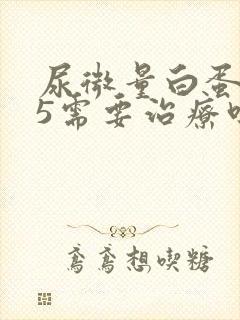 尿微量白蛋
5需要治疗
鸢鸢想喫糖